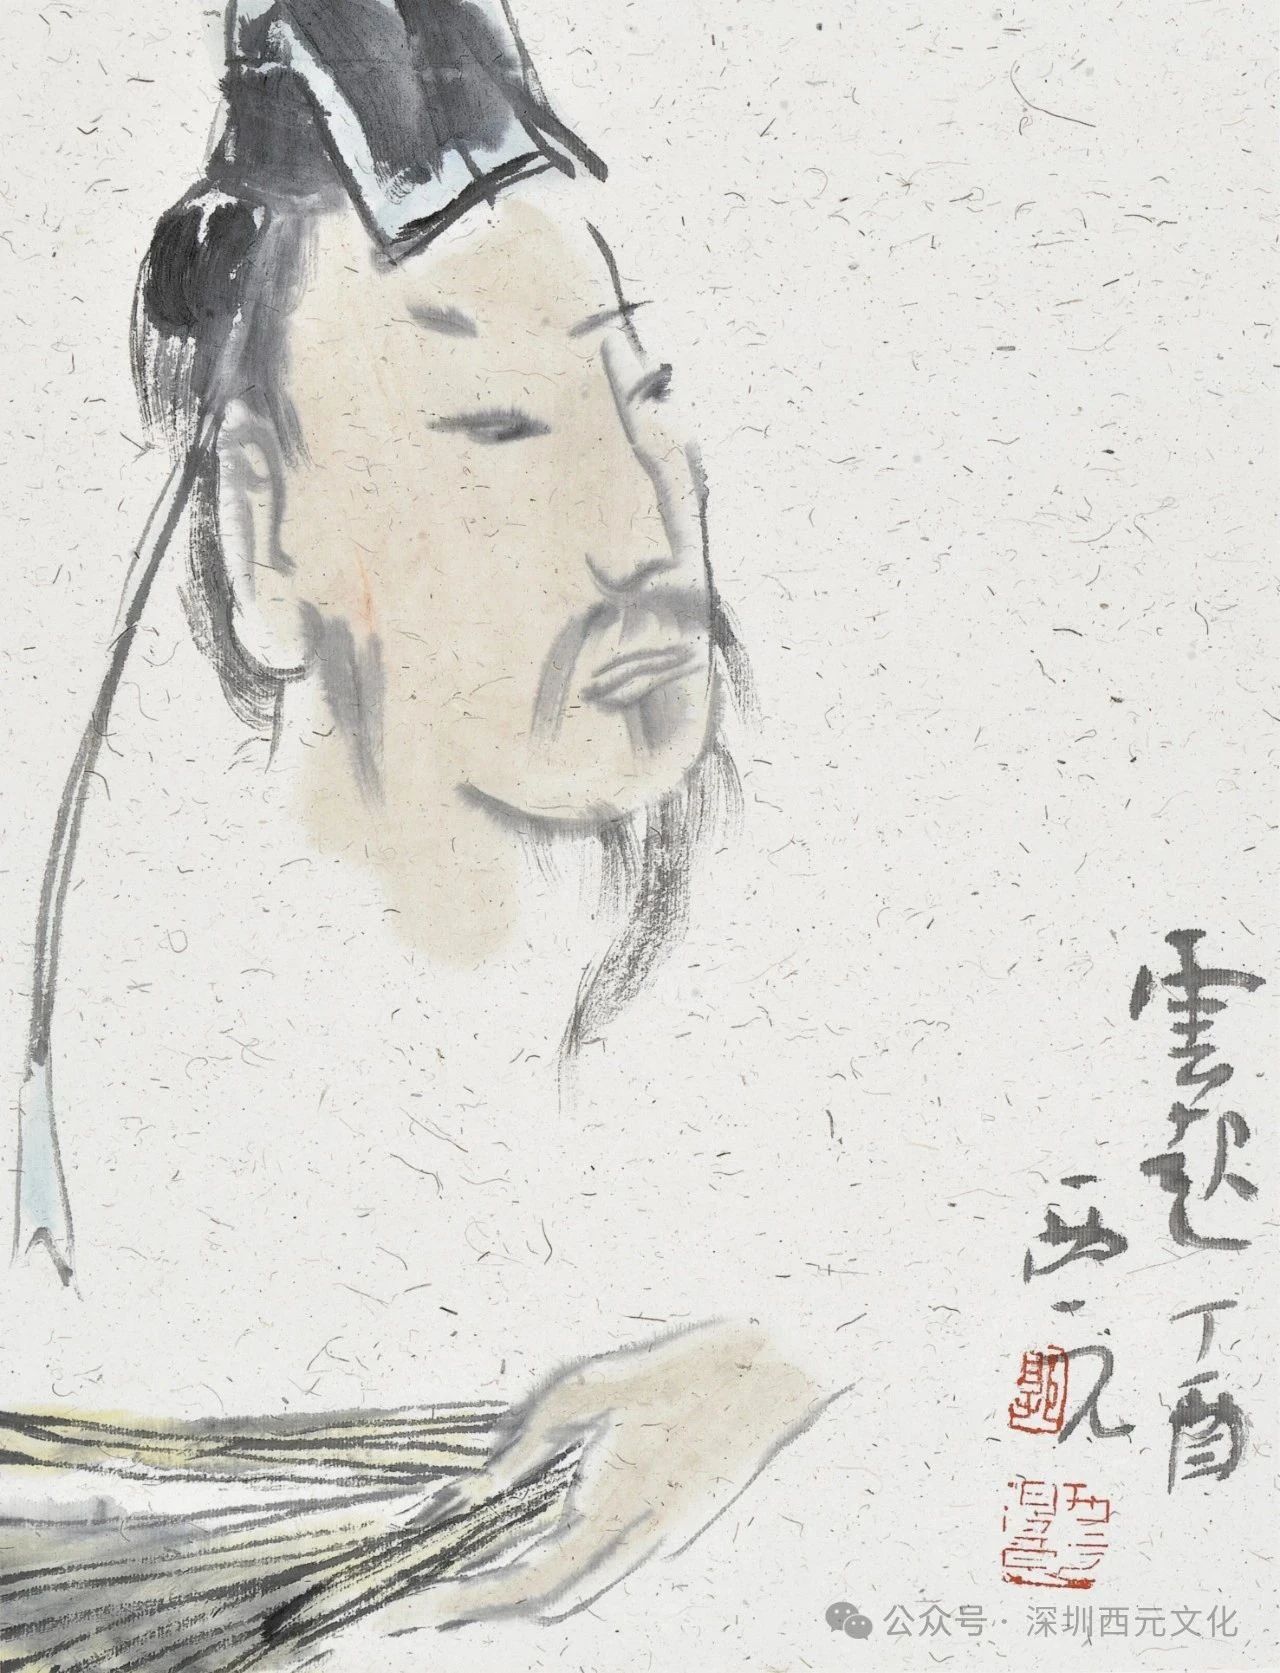 雲起 丁酉
西元
公众号·深圳西元文化